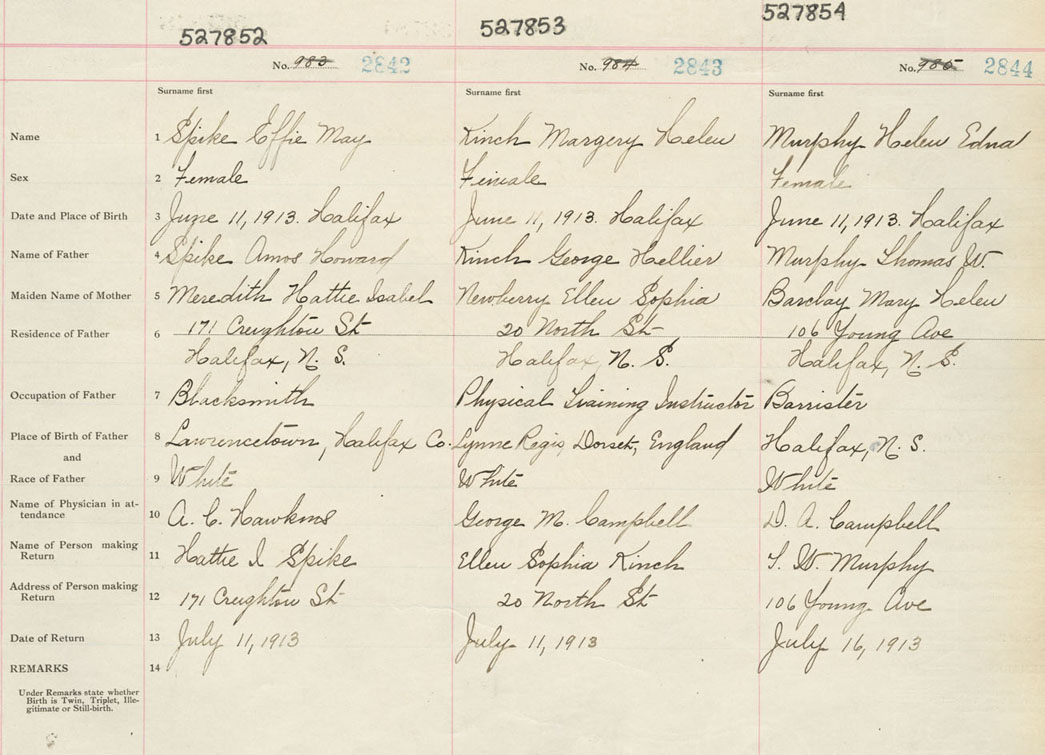 527852 527853 527854
No. 983 2842 No. 984 2843 No. 985 2844
Surname first Surname first Surname first
Name 1 Spike Effie May Kinch Margery Helen Murphy Helen Edna
Sex 2 Female Female Female
Date and Place of Birth 3 June 11, 1913. Halifax June 11, 1913. Halifax June 11, 1913. Halifax
Name of Father 4 Spike Amos Howard Kinch George Hellier Murphy Thomas W.
Maiden Name of Mother 5 Meredith Hattie Isabel Newberry Ellen Sophia Barclay Mary Helen
Residence of Father 6 171 Creighton St 20 North St 106 Young Ave
Halifax, N. S. Halifax, N. S. Halifax, N. S.
Occupation of Father 7 Blacksmith Physical Training Instructor Barrister
Place of Birth of Father 8 Lawrencetown, Halifax Co. Lynne Regis, Dorset, England Halifax, N. S.
and
Race of Father 9 White White White
Name of Physician in at-
tendance 10 A. C. Hawkins George M. Campbell D. A. Campbell
Name of Person making
Return 11 Hattie I Spike Ellen Sophia Kinch T. W. Murphy
Address of Person making
Return 12 171 Creighton St 20 North St 106 Young Ave
Date of Return 13 July 11, 1913 July 11, 1913 July 16, 1913
REMARKS 14
Under Remarks state whether
Birth is Twin, Triplet, Ille-
gitimate or Still-birth.